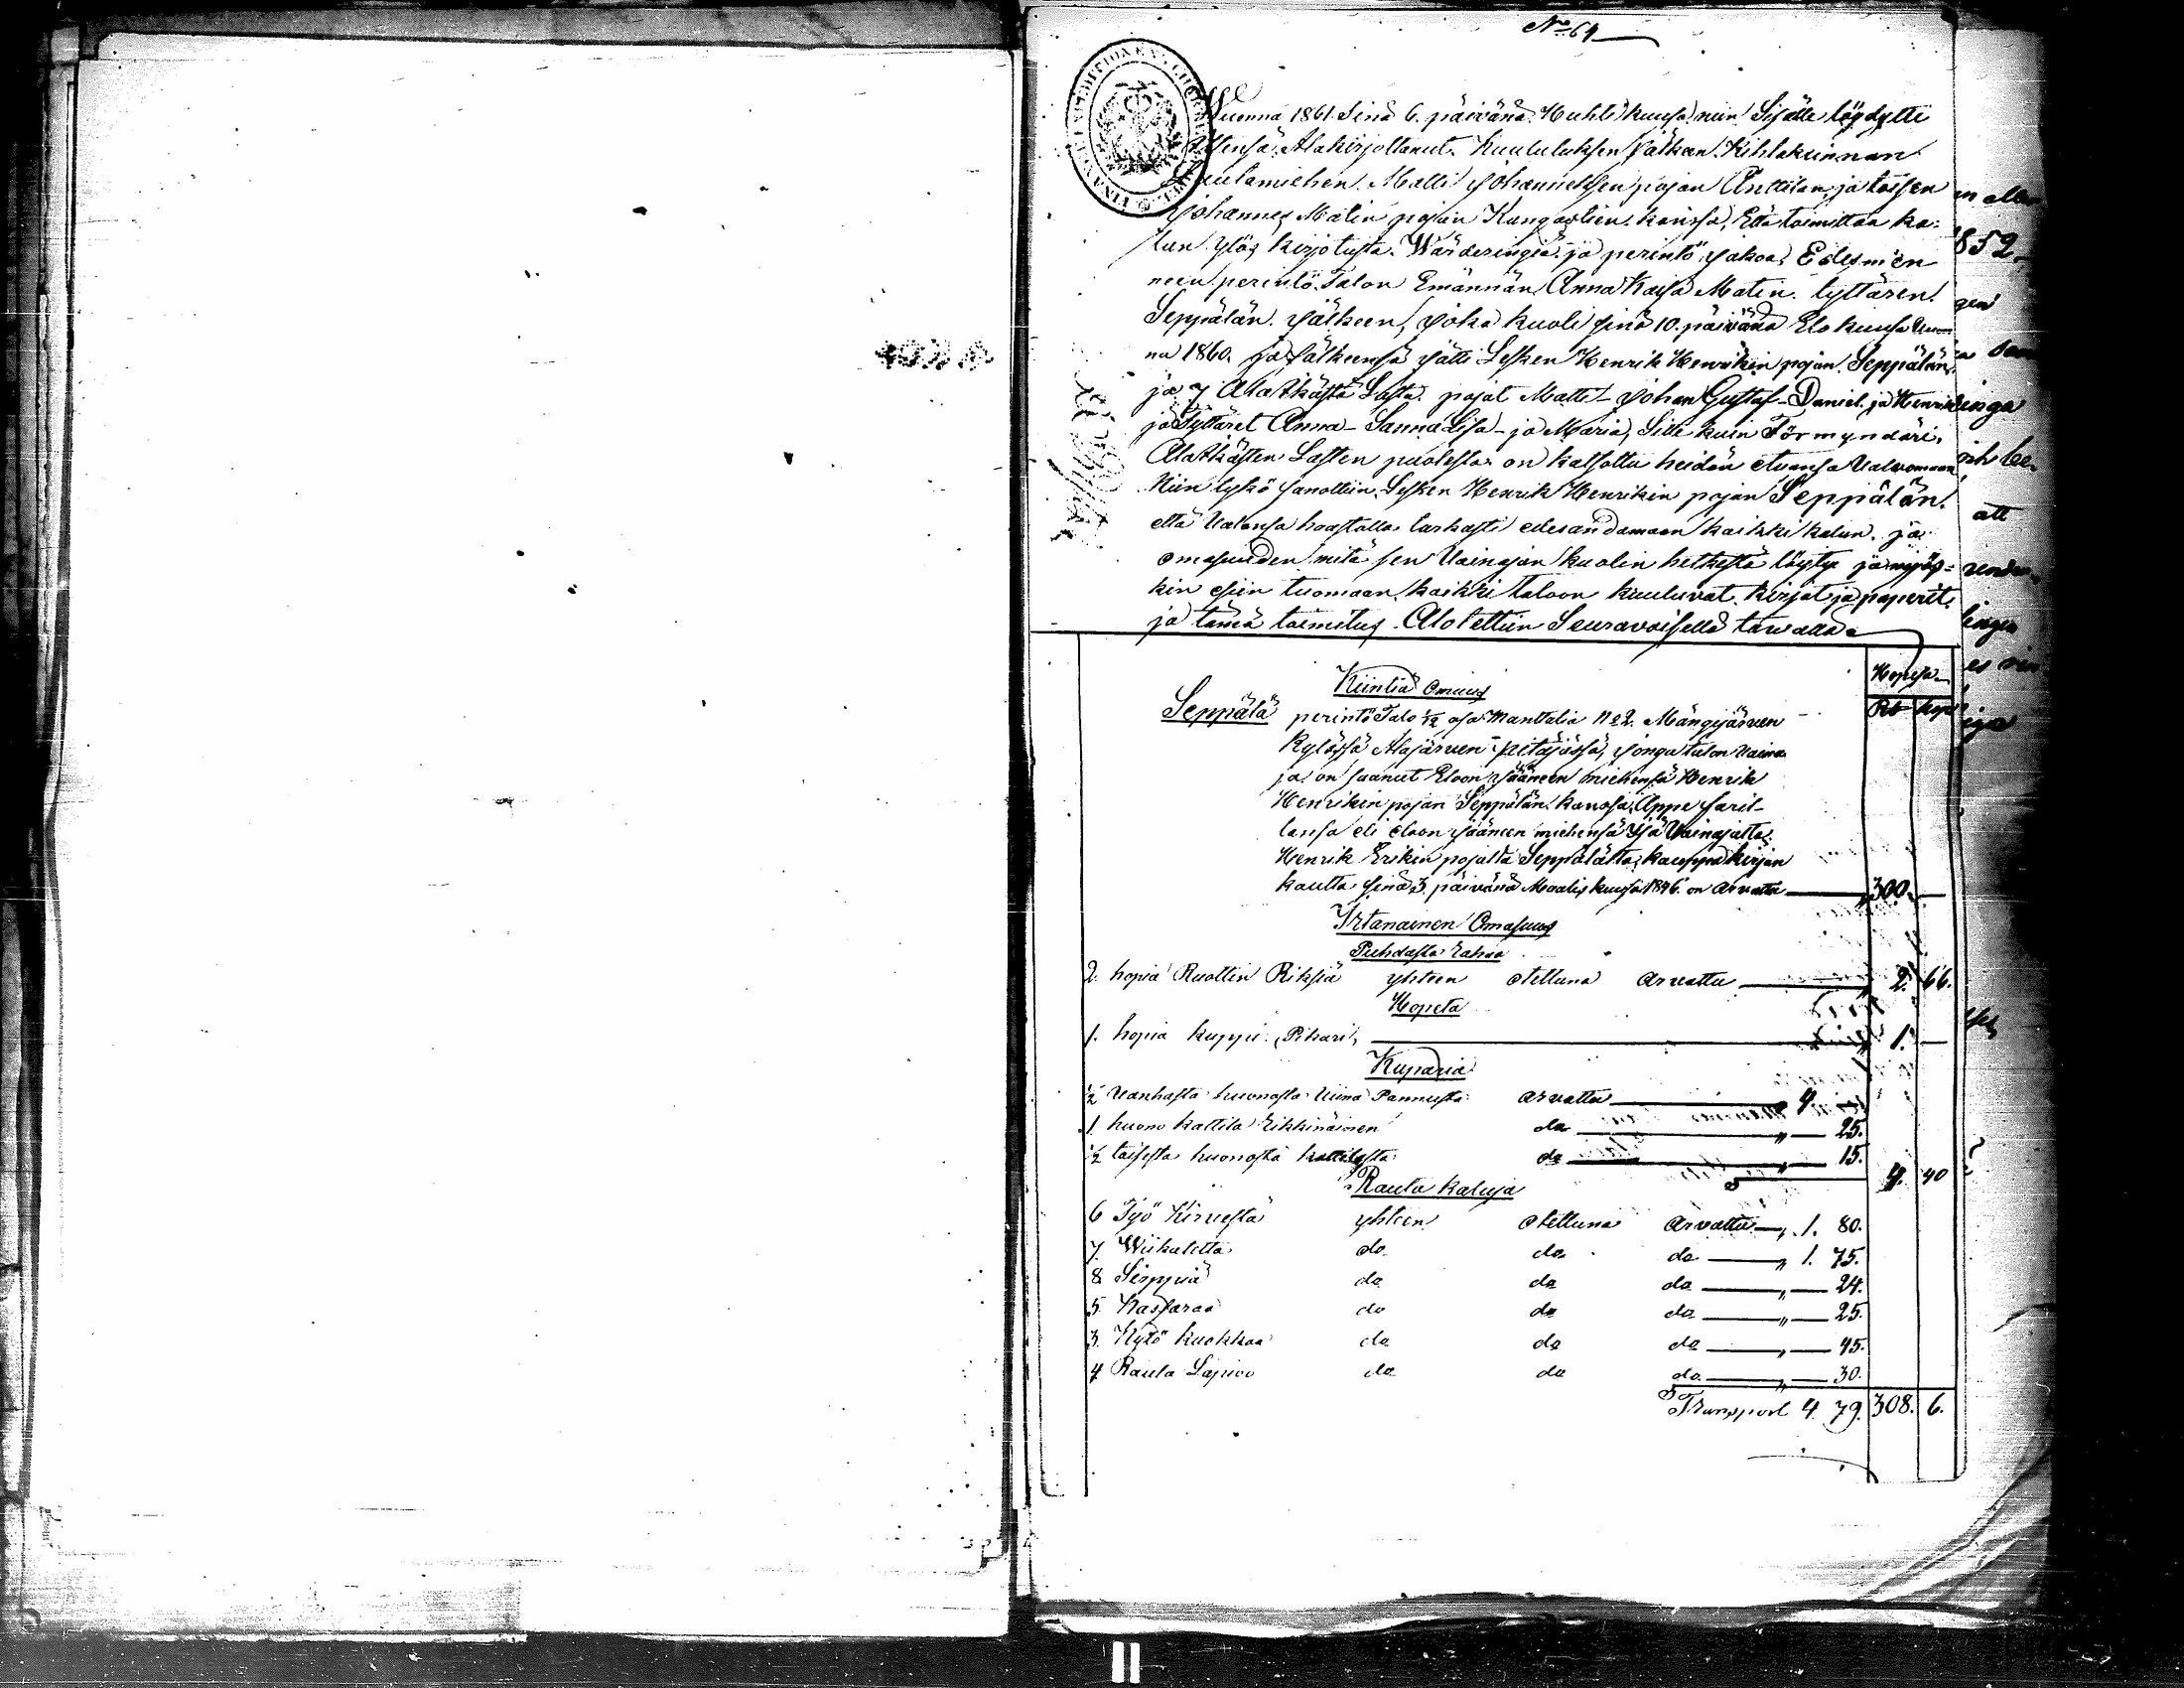 No 64
Wuonna 1861. Sinä 6. päivänä Huhtikuusa niin Sisälle löydytti
Itsensä Alakirjottanut Kuululuksen jälkeen Kihlakunnan
Lautamiehen Matti Johanneksen pojan Anttilan ja toisen
Johannes Matin pojan Kangastien kanssa, Että toimittaa ka-
lun ylös kirjotusta Wärderingiä ja perintö jakoa, Edesmen
neen perintö Talon Emännän Anna Kaisa Matin tyttären
Seppälän jälkeen, joka kuoli sinä 10. päivänä Elokuusa Vuon
na 1860. ja jälkeensä jätti Lesken Henrik Henrikin pojan Seppälän
ja 7 Alaikästä Lasta. pojat Matts - Johan Gustaf - Daniel. ja Henrik
ja Tyttäret Anna - Sanna Lisa - ja Maria, Sille kuin Förmyndäri,
Alaikästen Lasten puolesta on katsottu heidän etuansa Valvomaan
Niin lyhö sanottiin Lesken Henrik Henrikin pojan Seppälän
että Valansa haastolla tarkasti edesandamaan kaikki kalun ja
omasuuden mitä sen Vainajan kuolin hetkestä löytyi ja myös-
kin esiin tuomaan kaikki taloon kuuluvat kirjat ja paperit,
ja tämä toimitus Alotettiin Seuravaisella tawalla
Hopesa
Kiintiä Omaus
Rb kop
Seppälä perintö Talo 1/12 osa Manttalia No 2. Mängijärven
Kylässä Alajärven pitäjässä, jonga talon Vaina
ja on saanut Eloon jääneen miehensä Henrik
Henrikin pojan Seppälän kansa, Appe
lansa eli eloon jääneen miehensä Isä Vainajalta
Henrik Erikin pojalta Seppälältä, kauppa kirjan
kautta sinä 3. päivänä Maalis kuusa 1846 on Arvattu 300. —
Irtanainen Omasuus
Puhdasta Rahaa
2. hopia Ruottin Riksiä yhteen otettuna arvattu 2. 66.
Hopeta
1. hopia kuppi (Pikari) 1. —
Kuparia
1/2 Vanhasta huonosta Viina Pannusta arvattu 4. —
1 huono kattila Rikkinäinen do " — 25.
1/2 toisesta huonosta kattilasta do " — 15. 4. 40
Rauta kaluja
6 Työ Kirvestä yhteen otettuna Arvattu — " 1. 80.
7. Wiikatetta do do do — " 1. 75.
8 Sirppiä do do do — " — 24.
5. Kassaraa do do do — " — 25.
3. Kytö kuokkaa do do do — " — 45.
4 Rauta Lapioo do do do — " — 30.
Transport 4. 79. 308. 6.
852.
att